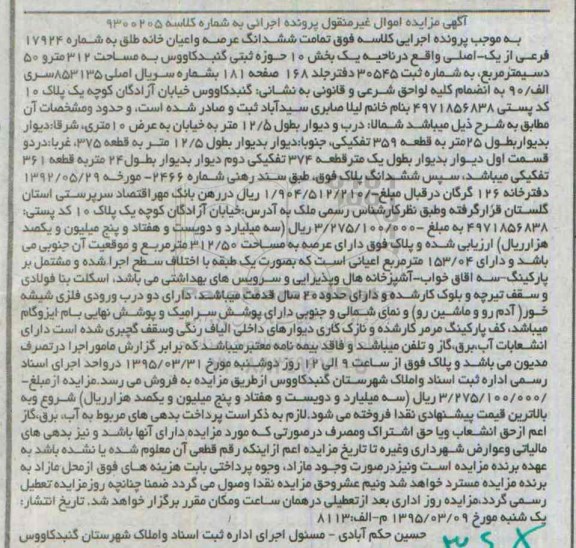 آگهی مزایده اموال غیرمنقول پرونده اجرائی به شماره کلاسه ۹۳۰۰۲۰۵
به موجب پرونده اجرایی کلاسه فوق تمامت ششدانگ عرصه واعیان خانه طلق به شماره ۱۷۹۲۴
فرعی از یک-اصلی واقع درناحیه یک بخش ۱۰ حوزه ثبتی گنبدکاووس به مساحت ۳۱۲ مترو ۵۰
دسیمترمربع، به شماره ثبت ۳۰۵۴۵ دفترجلد ۱۶۸ صفحه ۱۸۱ بشماره سریال اصلی ۸۵۳۱۳۵سری
الف/۹۰ به انضمام کلیه لواحق شرعی و قانونی به نشانی: گنبدکاووس خیابان آزادگان کوچه یک پلاک ۱۰
کد پستی ۴۹۷۱۸۵۶۸۳۸ بنام خانم لیلا صابری سیدآباد ثبت و صادر شده است، و حدود ومشخصات آن
مطابق به شرح ذیل میباشد شمالا: درب و دیوار بطول ۱۲/۵ متر به خیابان به عرض ۱۰متری، شرقا:دیوار
بدیواربطول ۲۵متر به قطعه ۳۵۹ تفکیکی، جنوبا:دیوار بدیوار بطول ۱۲/۵ متر به قطعه ۳۷۵، غربا:دردو
قسمت اول دیوار بدیوار بطول یک مترقطعه ۳۷۴ تفکیکی دوم دیوار بدیوار بطول۲۴ متربه قطعه ۳۶۱
تفکیکی میباشد، سپس ششدانگ پلاک فوق، طبق سند رهنی شماره ۲۴۶۶- مورخه ۱۳۹۲/۰۵/۲۹
دفترخانه ۱۲۶ گرگان درقبال مبلغ-/۱/۹۰۴/۵۱۲/۲۱۷ ریال دررهن بانک مهراقتصاد سرپرستی استان
گلستان قرارگرفته وطبق نظرکارشناس رسمی ملک به آدرس:خیابان آزادگان کوچه یک پلاک ۱۰ کد پستی:
۴۹۷۱۸۵۶۸۳۸ به مبلغ -/۳/۲۷۵/۱۰۰/۰۰۰ ریال (سه میلیارد و دویست و هفتاد و پنج میلیون و یکصد
هزارریال) ارزیابی شده و پلاک فوق دارای عرصه به مساحت ۳۱۲/۵۰ مترمربع و موقعیت آن جنوبی می
باشد و دارای ۱۵۳/۰۴ مترمربع اعیانی است که بصورت یک طبقه با اختلاف سطح اجرا شده و مشتمل بر
پارکینگ-سه اقاق خواب-آشپزخانه هال وپذیرایی و سرویس های بهداشتی می باشد، اسکلت بنا فولادی
و سقف تیرچه و بلوک کارشده و دارای حدود۲۰ سال قدمت میباشد، دارای دو درب ورودی فلزی شیشه
خور( آدم رو و ماشین رو) و نمای شمالی و جنوبی دارای پوشش سرامیک و پوشش نهایی بام ایزوگام
میباشد، کف پارکینگ مرمر کارشده و نازک کاری دیوارهای داخلی الیاف رنگی وسقف گچبری شده است دارای
انشعابات آب،برق،گاز و تلفن میباشند و فاقد بیمه نامه معتبرمیباشد که برابر گزارش ماموراجرا درتصرف
مدیون می باشد و پلاک فوق از ساعت ۹ الی ۱۲ روز دوشنبه مورخ ۱۳۹۵/۰۳/۳۱ درواحد اجرای اسناد
رسمی اداره ثبت اسناد واملاک شهرستان گنبدکاووس ازطریق مزایده به فروش می رسد.مزایده ازمبلغ-
/۳/۲۷۵/۱۰۰/۰۰۰ ریال (سه میلیارد و دویست و هفتاد و پنج میلیون و یکصد هزارریال) شروع وبه
بالاترین قیمت پیشنهادی نقدا فروخته می شود.لازم به ذکراست پرداخت بدهی های مربوط به آب، برق،گاز
اعم ازحق انشعاب ویا حق اشتراک ومصرف درصورتی که مورد مزایده دارای آنها باشد و نیز بدهی های
مالیاتی وعوارض شهرداری وغیره تا تاریخ مزایده اعم ازاینکه رقم قطعی آن معلوم شده یا نشده باشد به
عهده برنده مزایده است ونیزدرصورت وجود مازاد، وجوه پرداختی بابت هزینه های فوق ازمحل مازاد به
برنده مزایده مسترد خواهد شد ونیم عشروحق مزایده نقدا وصول می گردد ضمنا چنانچه روزمزایده تعطیل
رسمی گردد،مزایده روز اداری بعد ازتعطیلی درهمان ساعت ومکان مقرر برگزار خواهد شد. تاریخ انتشار:
یک شنبه مورخ ۱۳۹۵/۰۳/۰۹ م-الف:۸۱۱۳
حسین حکم آبادی - مسئول اجرای اداره ثبت اسناد واملاک شهرستان گنبدکاووس